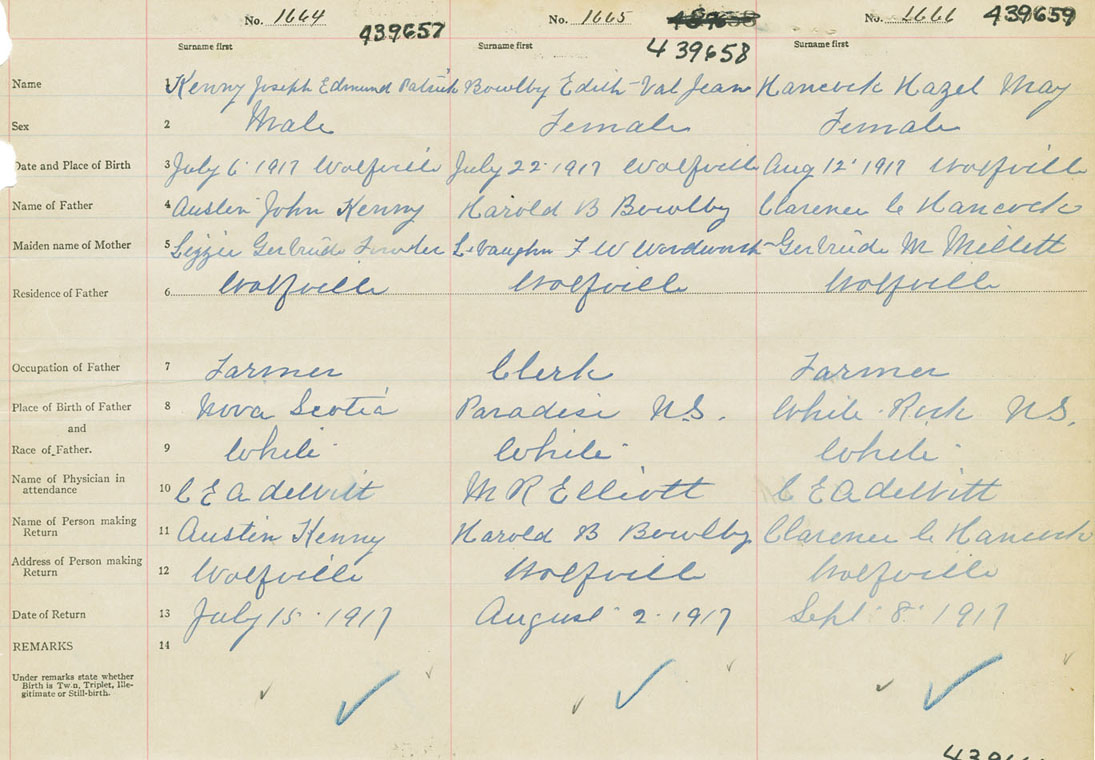 No. 1664 439657 No. 1665 No. 1666 439659
439658
Surname first Surname first Surname first
Name 1 Kenny Joseph Edmund Patrick Bowlby Edith-Val Jean Hancock Hazel May
Sex 2 Male Female Female
Date and Place of Birth 3 July 6 1917 Wolfville July 22 1917 Wolfville Aug 12 1917 Wolfville
Name of Father 4 Austin John Kenny Harold B Bowlby Clarence C Hancock
Maiden name of Mother 5 Lizzie Gertrude Fowler Vaughn F W Wordworth Gertrude M Millett
Residence of Father 6 Wolfville Wolfville Wolfville
Occupation of Father 7 Farmer Clerk Farmer
Place of Birth of Father 8 Nova Scotia Paradise N.S. White Rock N.S.
and
Race of Father. 9 White White White
Name of Physician in
attendance 10 C E A deWitt M R Elliott C E A deWitt
Name of Person making
Return 11 Austin Kenny Harold B Bowlby Clarence C Hancock
Address of Person making
Return 12 Wolfville Wolfville Wolfville
Date of Return 13 July 15 1917 August 2 1917 Sept 8 1917
REMARKS 14
Under remarks state whether
Birth is Tw.n, Triplet, Ille-
gitimate or Still-birth.